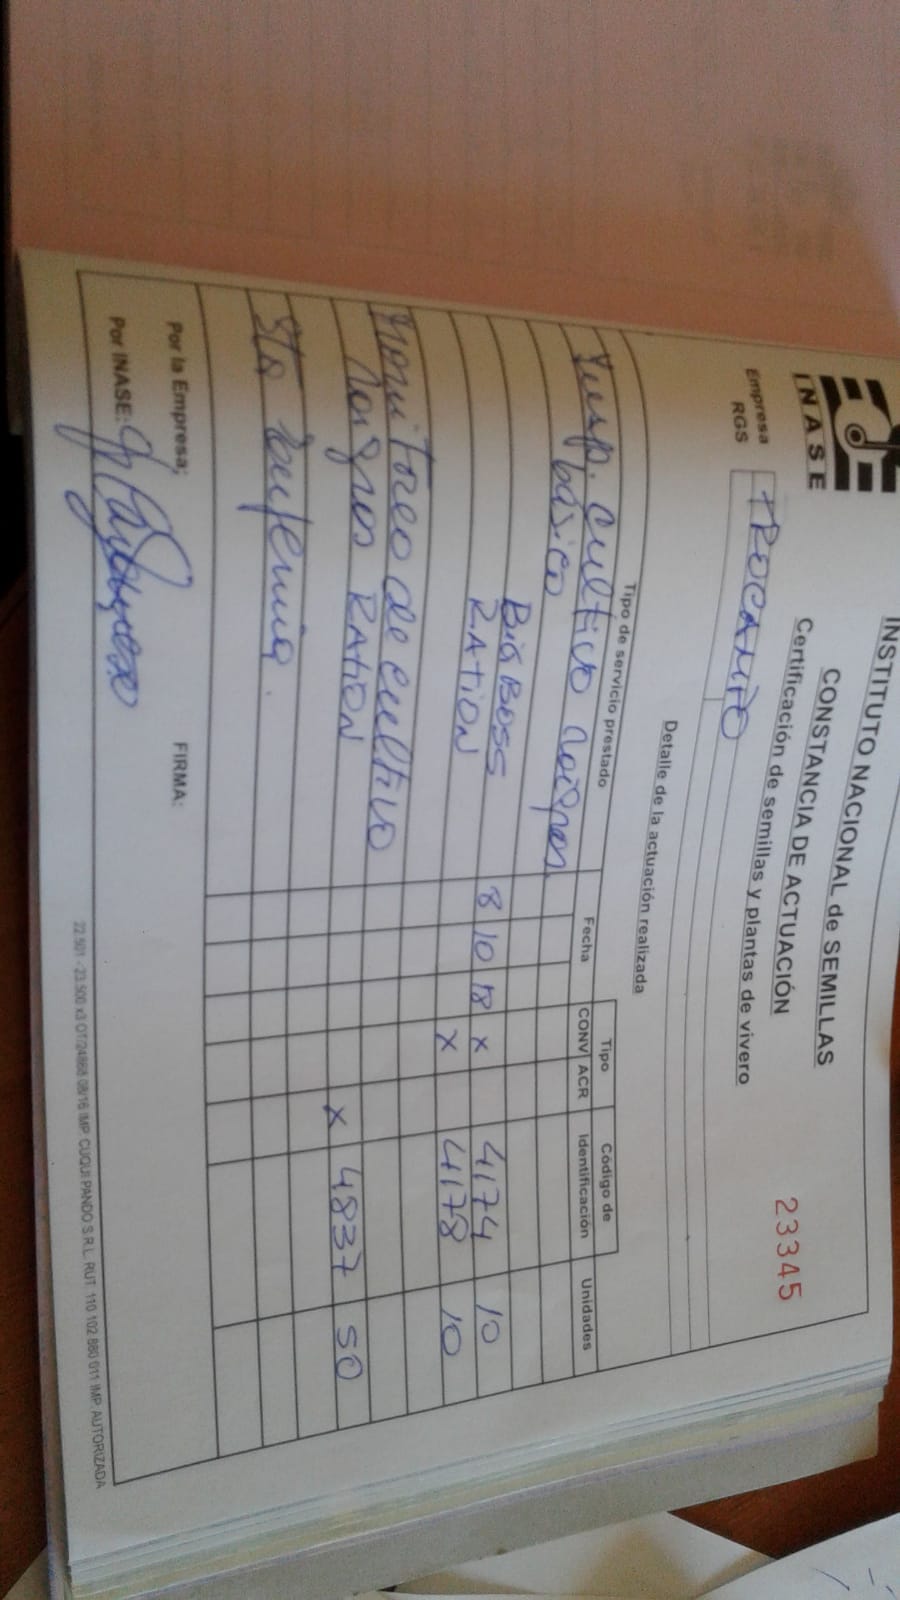 INASE
INSTITUTO NACIONAL de SEMILLAS
CONSTANCIA DE ACTUACIÓN
Certificación de semillas y plantas de vivero
23345
Empresa TROCANTO
RGS
Detalle de la actuación realizada
Tipo de servicio prestado Fecha Tipo CONV ACR Código de Identificación Unidades
Insp. cultivo
básico
BiG BOSS 8 10 18 x 4174 10
RATION x 4178 10
Monitoreo de cultivo
RATION x 4837 50
Sta Eufemia.
Por la Empresa; FIRMA:
Por INASE:
22.501 - 23.500 x3 OT/24868 08/16 IMP. CUQUI PANDO S.R.L. RUT. 110 102 880 011 IMP. AUTORIZADA